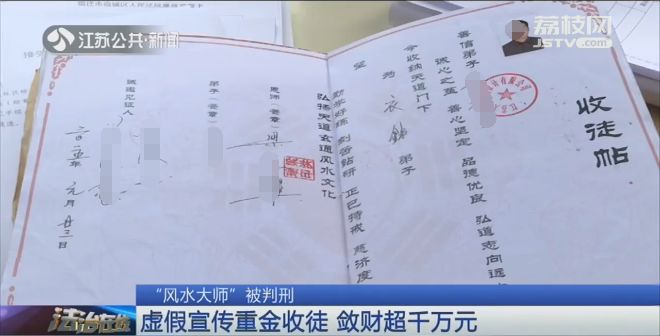 江苏公共·新闻
荔枝网
JSTV.com
收徒帖
善信弟子
诚心之至 善心坚定 品德优良 弘道志向远
今收纳天道门下
第 为 衣钵 弟子
勤学好练 刻苦钻研 正己特戒 慈济度
弘扬天道玄通风水文化
恩师（签章）
弟子（签章）
诚邀见证人
“风水大师”被判刑
法治在线
虚假宣传重金收徒 敛财超千万元